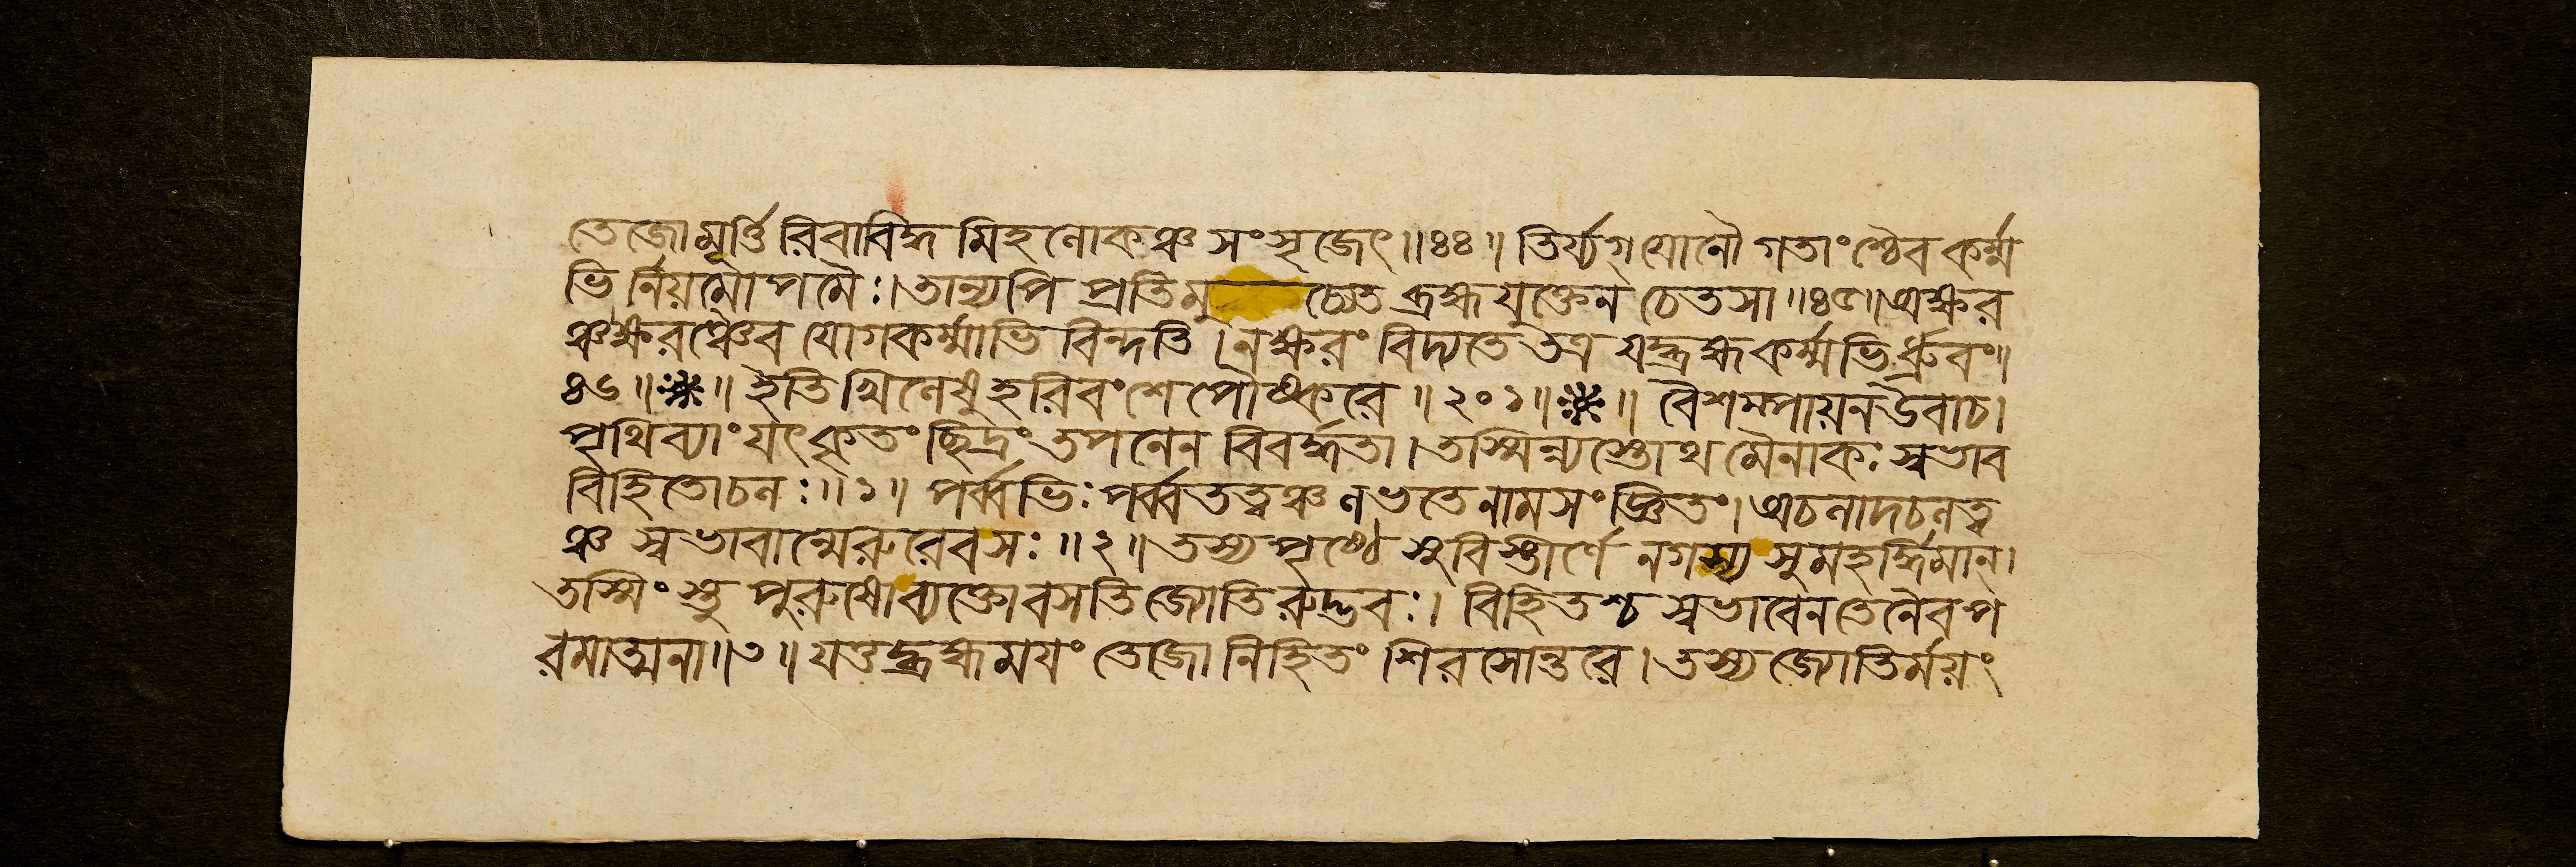 তেজোমূর্ত্তিরিবাবিহ্ন মিহলোকঞ্চ সংসৃজেৎ॥৪৪॥ তির্য্যগ্ যোনৌ গতাংশ্চৈব কর্ম্ম
ভি র্নিয়মৌপমৈঃ। তান্যপি প্রতিমু চ্যেত ব্রহ্মযুক্তেন চেতসা॥৪৫॥ অক্ষর
ঞ্চক্ষরঞ্চৈব যোগকর্ম্মাভি বিন্দতি। নক্ষরং বিদ্যতে তত্র যদ্ব্রহ্মকর্ম্মভি র্ধ্রুবং॥
৪৬॥ ॥ ইতি খিলেষু হরিবংশে পৌষ্করে॥২০১॥ ॥ বৈশম্পায়ন উবাচ।
পৃথিব্যাং যৎ কৃতং ছিদ্রং তপনেন বিবর্দ্ধতা। তস্মিন্ন্যস্তোথ মৈনাকঃ স্বভাব
বিহিতোচলঃ॥১॥ পর্ব্বভিঃ পর্ব্বতত্বঞ্চ লভতে নামসংজ্ঞিতং। অচলাদচলত্ব
ঞ্চ স্বভাবান্মেরুরেবসঃ॥২॥ তস্য পৃষ্ঠে সুবিস্তীর্ণে নগস্য সুমহর্দ্ধিমান্।
তস্মিংস্তু পুরুষোব্যক্তোবসতি জ্যোতিরুদ্ভবঃ। বিহিতশ্চ স্বভাবেন তেনৈব প
রমাত্মনা॥৩॥ যত্তদ্ব্রহ্মময়ং তেজো নিহিতং শিরসোন্তরে। তস্য জ্যোতির্ময়ং